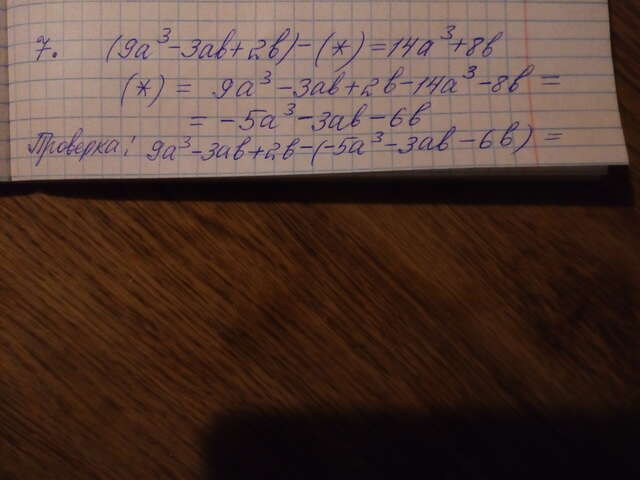 7. (9a³-3ab+2b)-(*)=14a³+8b
(*) = 9a³-3ab+2b-14a³-8b =
= -5a³-3ab-6b
Проверка: 9a³-3ab+2b-(-5a³-3ab-6b) =